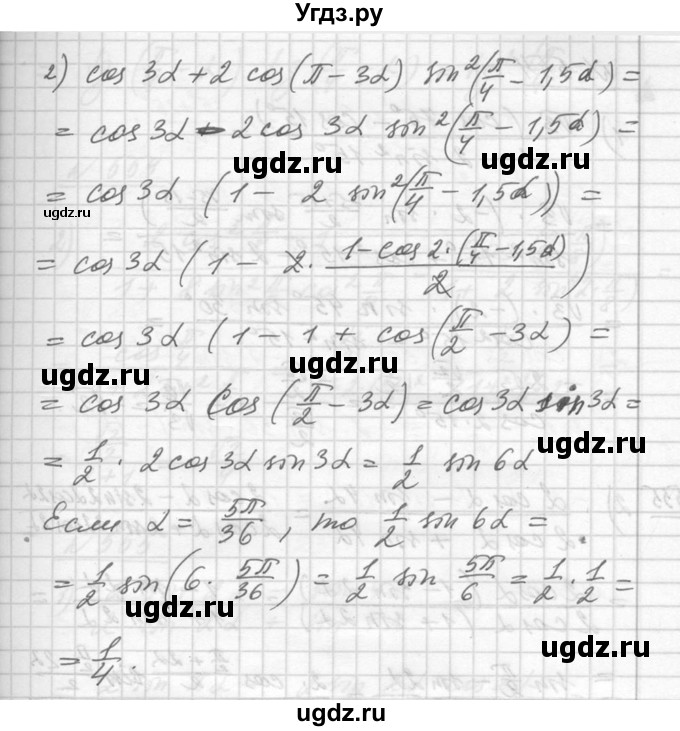 Угдз.ру
2) cos 3α + 2 cos(π − 3α) sin²(π/4 − 1,5α) =
= cos 3α − 2 cos 3α sin²(π/4 − 1,5α) =
ugdz.ru ugdz.ru
= cos 3α (1 − 2 sin²(π/4 − 1,5α)) =
ugdz.ru
= cos 3α (1 − 2 · (1 − cos 2 · (π/4 − 1,5α))/2)
= cos 3α (1 − 1 + cos(π/2 − 3α) =
ugdz.ru ugdz.ru
= cos 3α cos(π/2 − 3α) = cos 3α sin 3α =
ugdz.ru
= 1/2 · 2 cos 3α sin 3α = 1/2 sin 6α
Если α = 5π/36, то 1/2 sin 6α =
ugdz.ru ugdz.ru
= 1/2 sin(6 · 5π/36) = 1/2 sin 5π/6 = 1/2 · 1/2 =
ugdz.ru
= 1/4.
ugdz.ru ugdz.ru
ugdz.ru